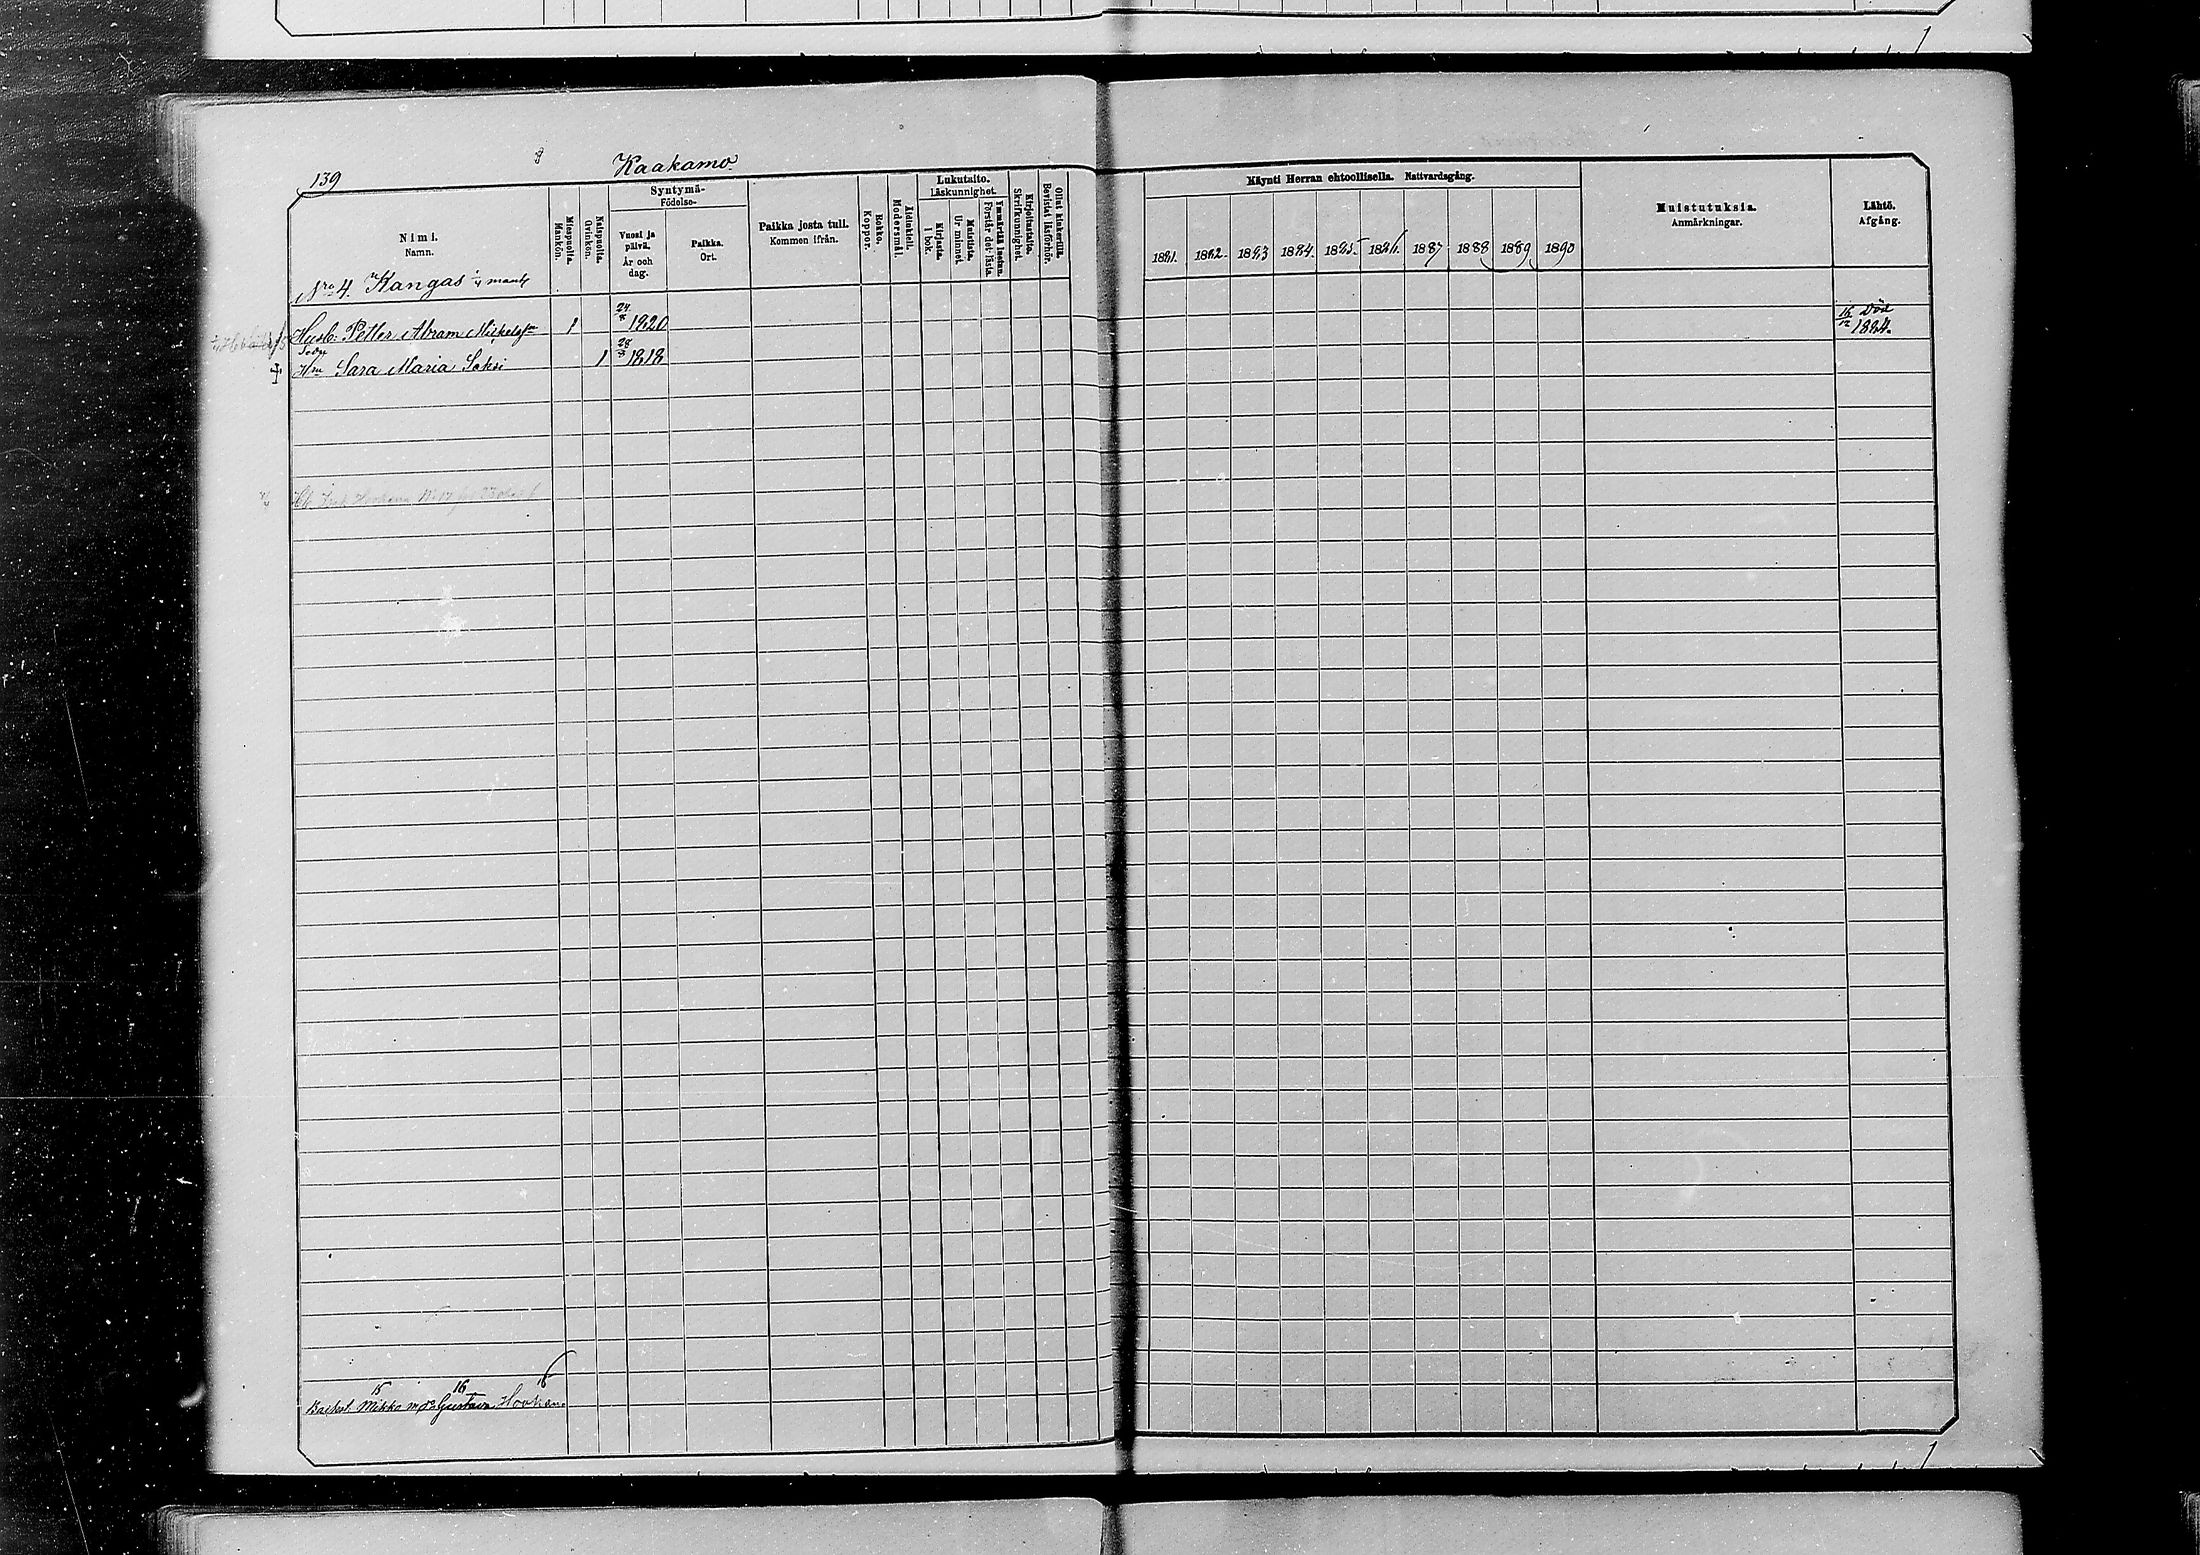 139
Kaakamo.
Nimi.
Namn.
Miespuolia.
Mankön.
Naispuolia.
Qvinkön.
Syntymä-
Födelse-
Vuosi ja
päivä.
År och
dag.
Paikka.
Ort.
Paikka josta tuli.
Kommen ifrån.
Rokko.
Koppor.
Äidinkieli.
Modersmål.
Lukutaito.
Läskunnighet.
Kirjasta.
I bok.
Muistista.
Ur minnet.
Ymmärtää luetun.
Förstår det lästa.
Kirjoitustaito.
Skrifkunnighet.
Ollut kinkerillä.
Bevistat läsförhör.
Käynti Herran ehtoollisella. Nattvardsgång.
1881. 1882. 1883 1884. 1885. 1886. 1887 1888 1889 1890
Muistutuksia.
Anmärkningar.
Lähtö.
Afgång.
Nro 4. Kangas 1/4 mantl
Husb: Petter Abram Mickelsson 1 24/8 1820 16/12 Död 1884.
Hu Sara Maria Soksi 1 28/3 1818
15 16
Mikko Gustava